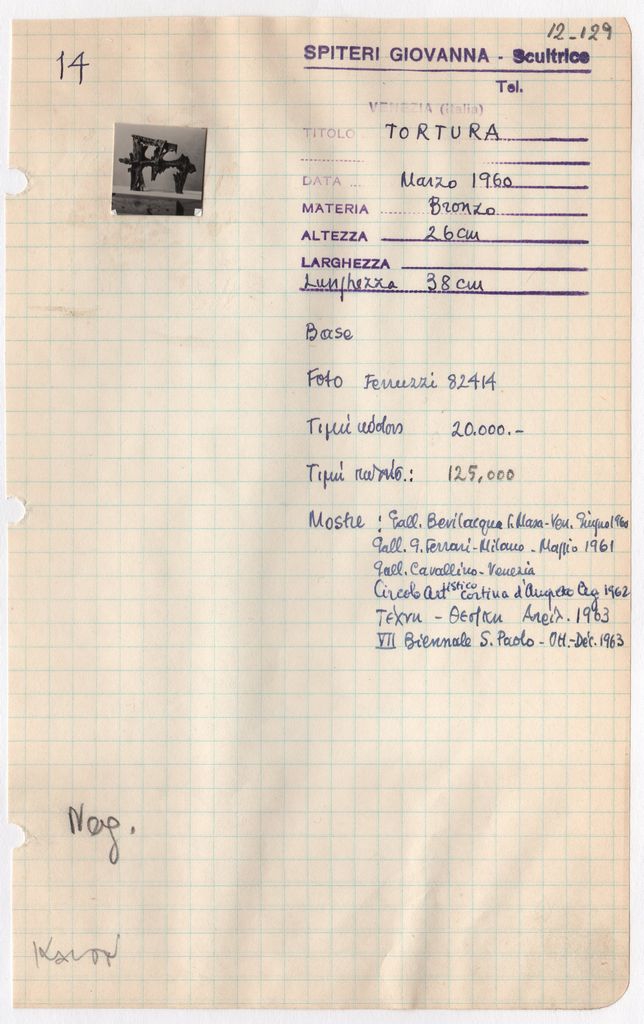 12-129
14
SPITERI GIOVANNA - Scultrice
Tel.
VENEZIA (italia)
TITOLO TORTURA
DATA Marzo 1960
MATERIA Bronzo
ALTEZZA 26 cm
LARGHEZZA
Lunghezza 38 cm
Base
Foto Ferruzzi 82414
Τιμή 20.000.-
Τιμή 125,000
Mostre : Gall. Bevilacqua l. Masa-Ven. Giugno 1960
Gall. G. Ferrari-Milano - Maggio 1961
Gall. Cavallino - Venezia
Circolo Artistico Cortina d'Ampezzo 1962
Τέχνη - Θεσ/κη Απρίλ. 1963
VII Biennale S. Paolo - Ott.-Dec. 1963
Neg.